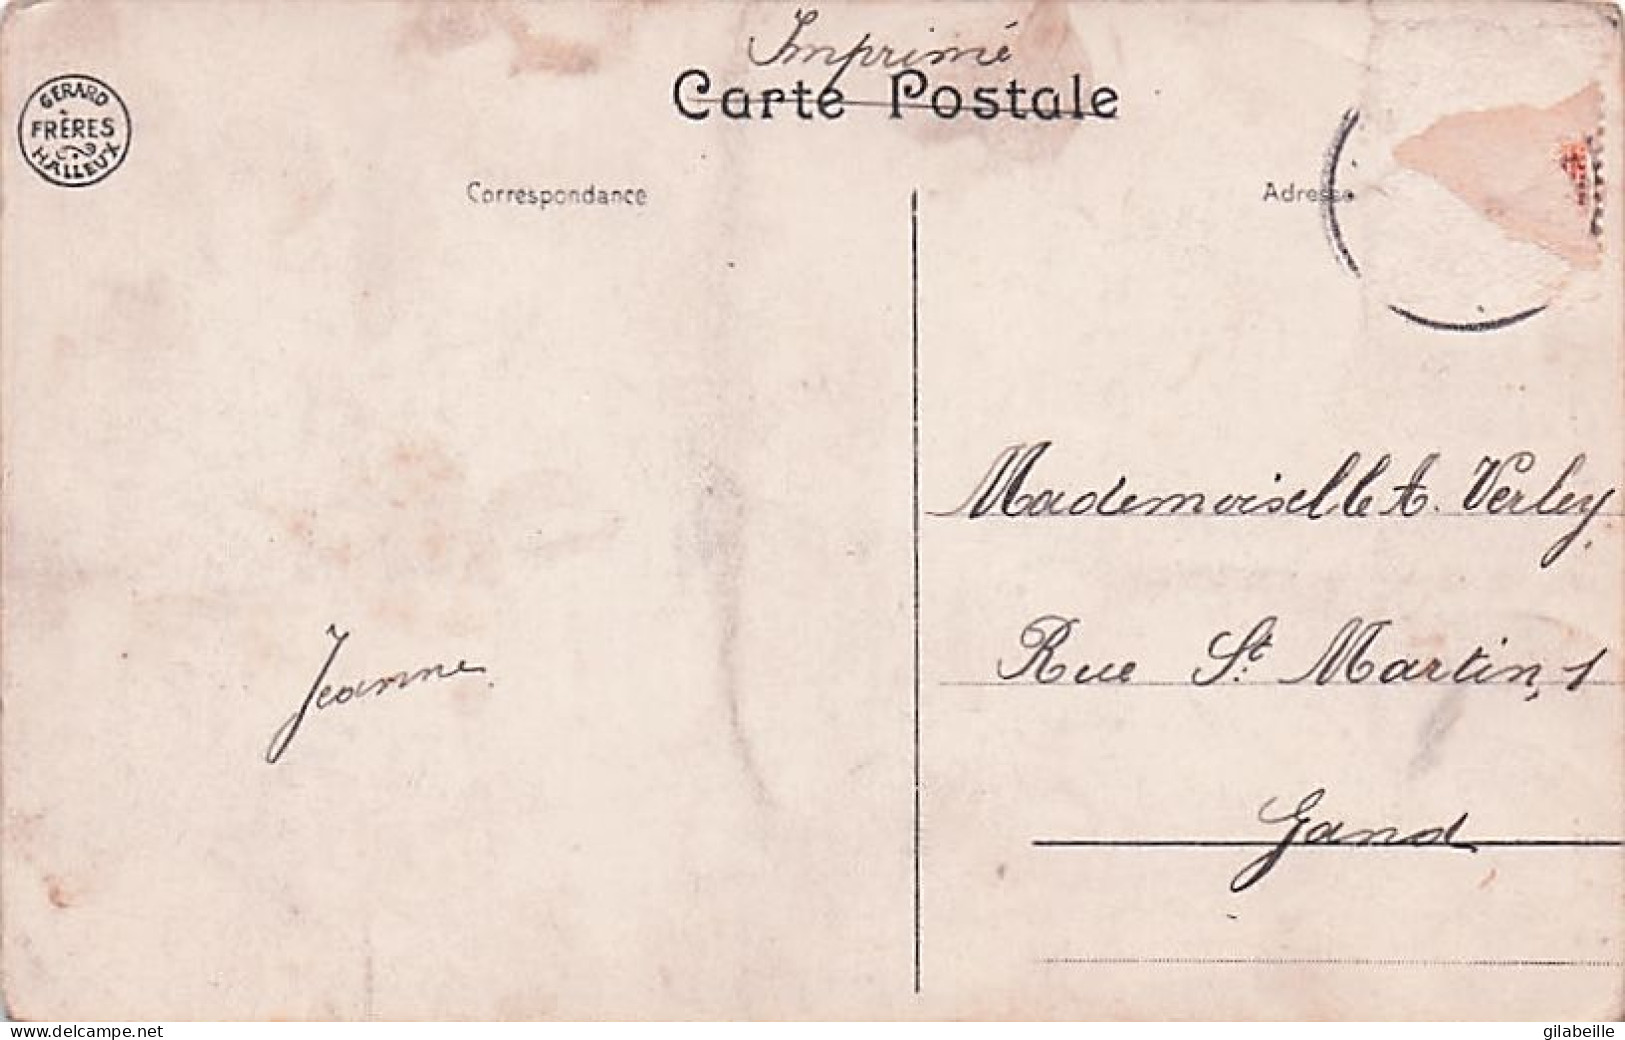 Imprimé
Carte Postale
GERARD
FRÈRES
HALLEUX
Correspondance
Adresse
Mademoiselle A. Verley
Rue St. Martin, 1
Gand
Jeanne.
www.delcampe.net
gilabeille